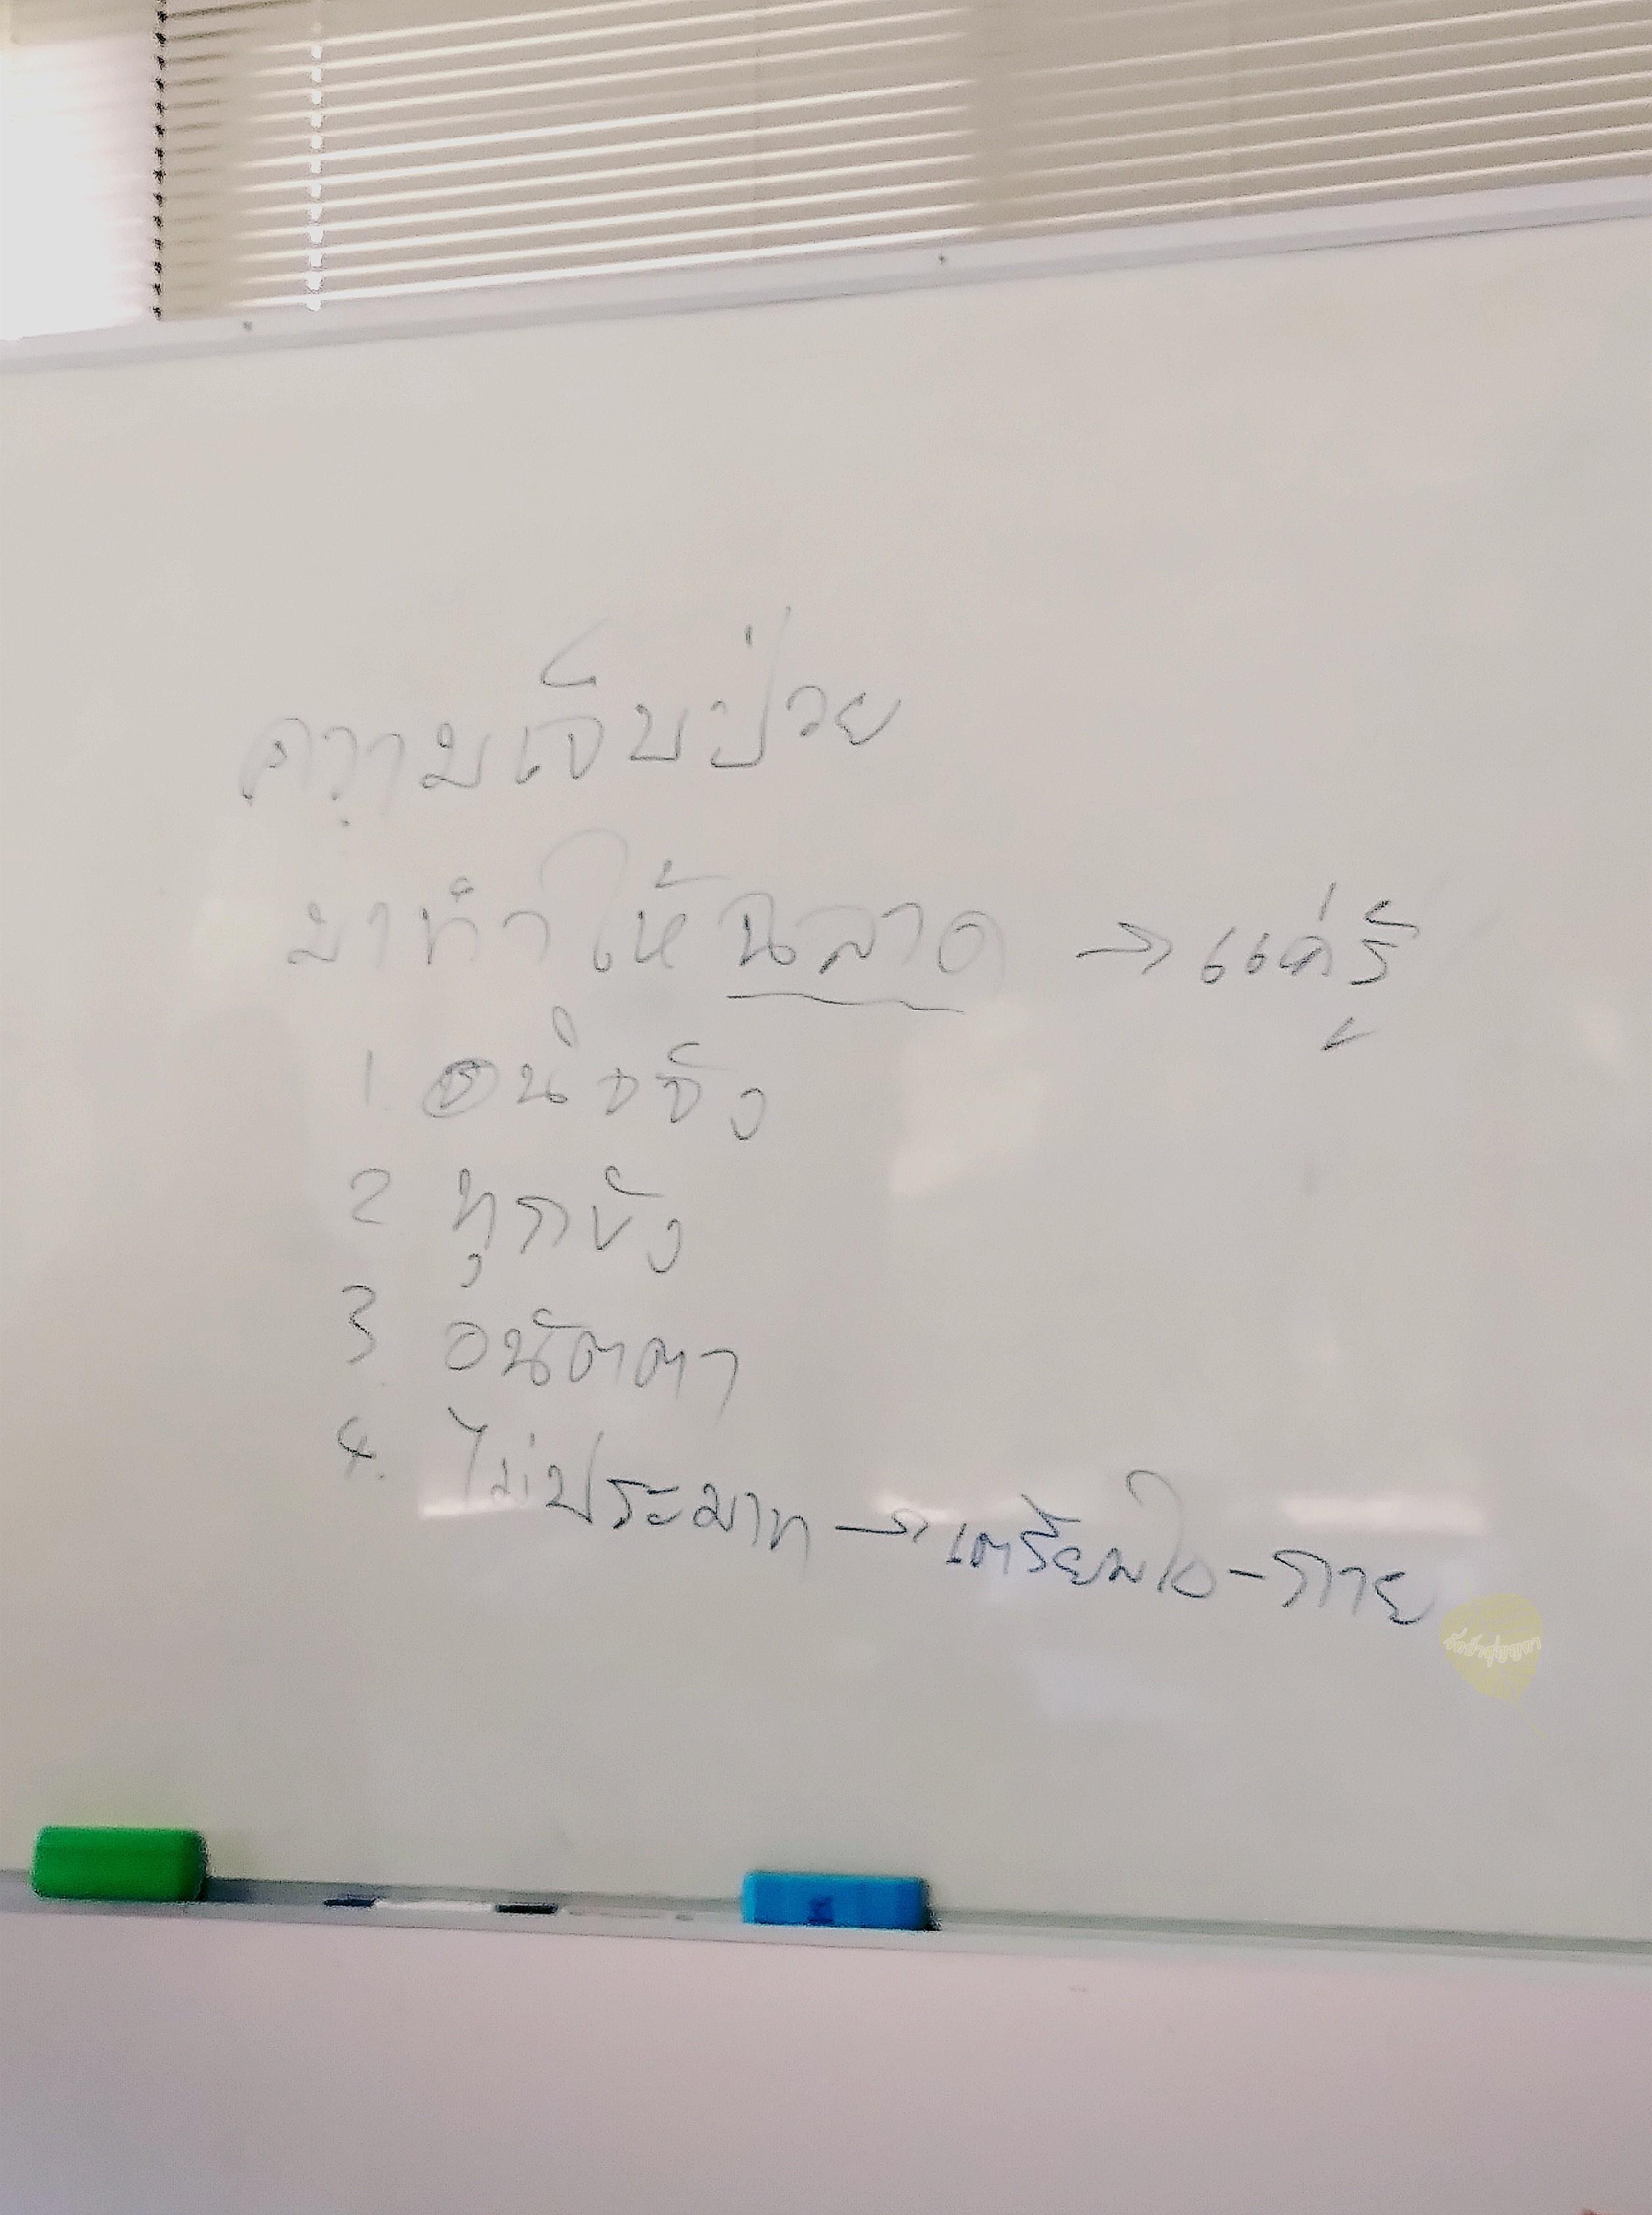 ความเจ็บป่วย
มาทำให้ฉลาด → แค่รู้
1. อนิจจัง
2 ทุกขัง
3. อนัตตา
4. ไม่ประมาท → เตรียมใจ - กาย